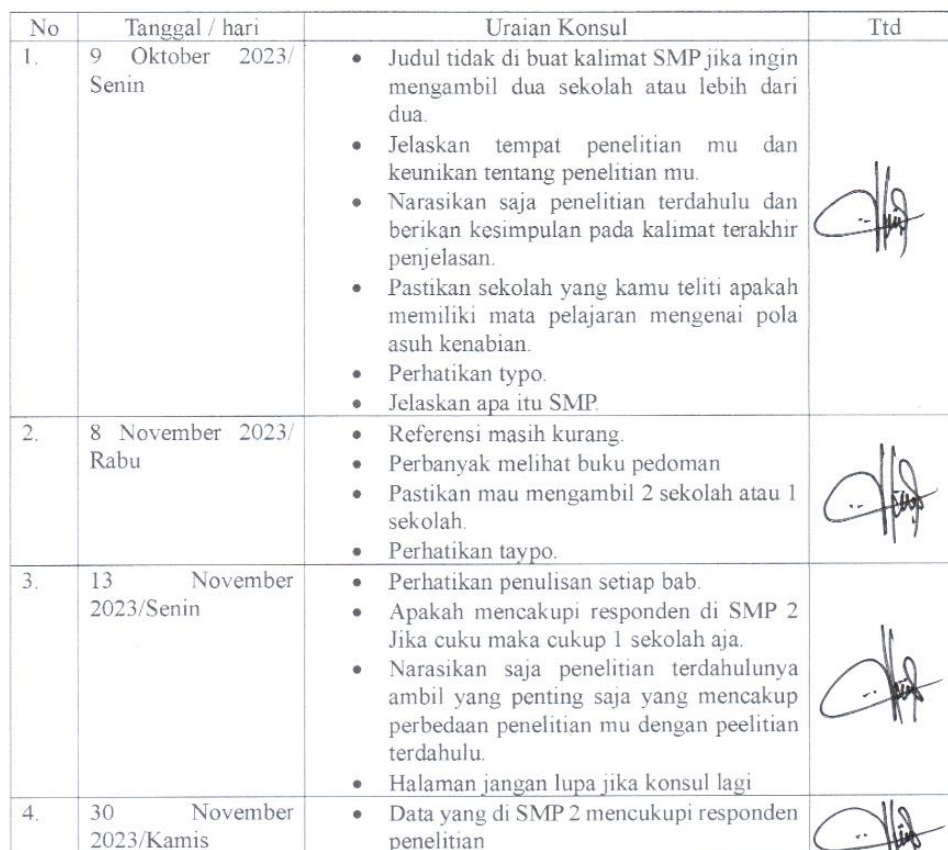 No Tanggal / hari Uraian Konsul Ttd
1. 9 Oktober 2023/
Senin
• Judul tidak di buat kalimat SMP jika ingin
mengambil dua sekolah atau lebih dari
dua.
• Jelaskan tempat penelitian mu dan
keunikan tentang penelitian mu.
• Narasikan saja penelitian terdahulu dan
berikan kesimpulan pada kalimat terakhir
penjelasan.
• Pastikan sekolah yang kamu teliti apakah
memiliki mata pelajaran mengenai pola
asuh kenabian.
• Perhatikan typo.
• Jelaskan apa itu SMP.
2. 8 November 2023/
Rabu
• Referensi masih kurang.
• Perbanyak melihat buku pedoman
• Pastikan mau mengambil 2 sekolah atau 1
sekolah.
• Perhatikan taypo.
3. 13 November
2023/Senin
• Perhatikan penulisan setiap bab.
• Apakah mencakupi responden di SMP 2
Jika cuku maka cukup 1 sekolah aja.
• Narasikan saja penelitian terdahulunya
ambil yang penting saja yang mencakup
perbedaan penelitian mu dengan peelitian
terdahulu.
• Halaman jangan lupa jika konsul lagi
4. 30 November
2023/Kamis
• Data yang di SMP 2 mencukupi responden
penelitian